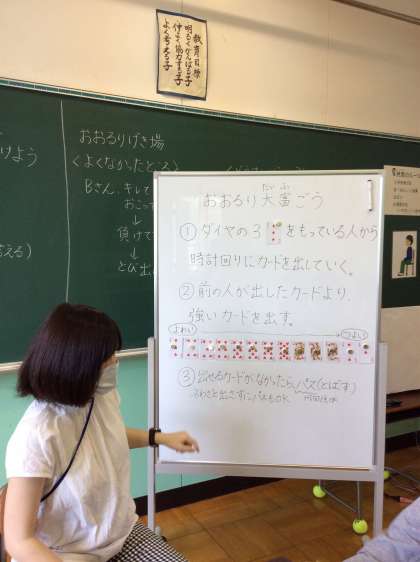 教育目標
明るくがんばる子
仲よく協力する子
よく考える子
おおるりげき場
〈よくなかったところ〉
Bさん、キレて
おこって
↓
負けて
↓
とび出
けよう
える)
たい ふ
おおるり 大富ごう
① ダイヤの3 をもっている人から
時計回りにカードを出していく。
② 前の人が出したカードより、
強いカードを出す。
よわい つよい
③ 出せるカードがなかったら、パス(とばす)
わざと出さずにパスもOK